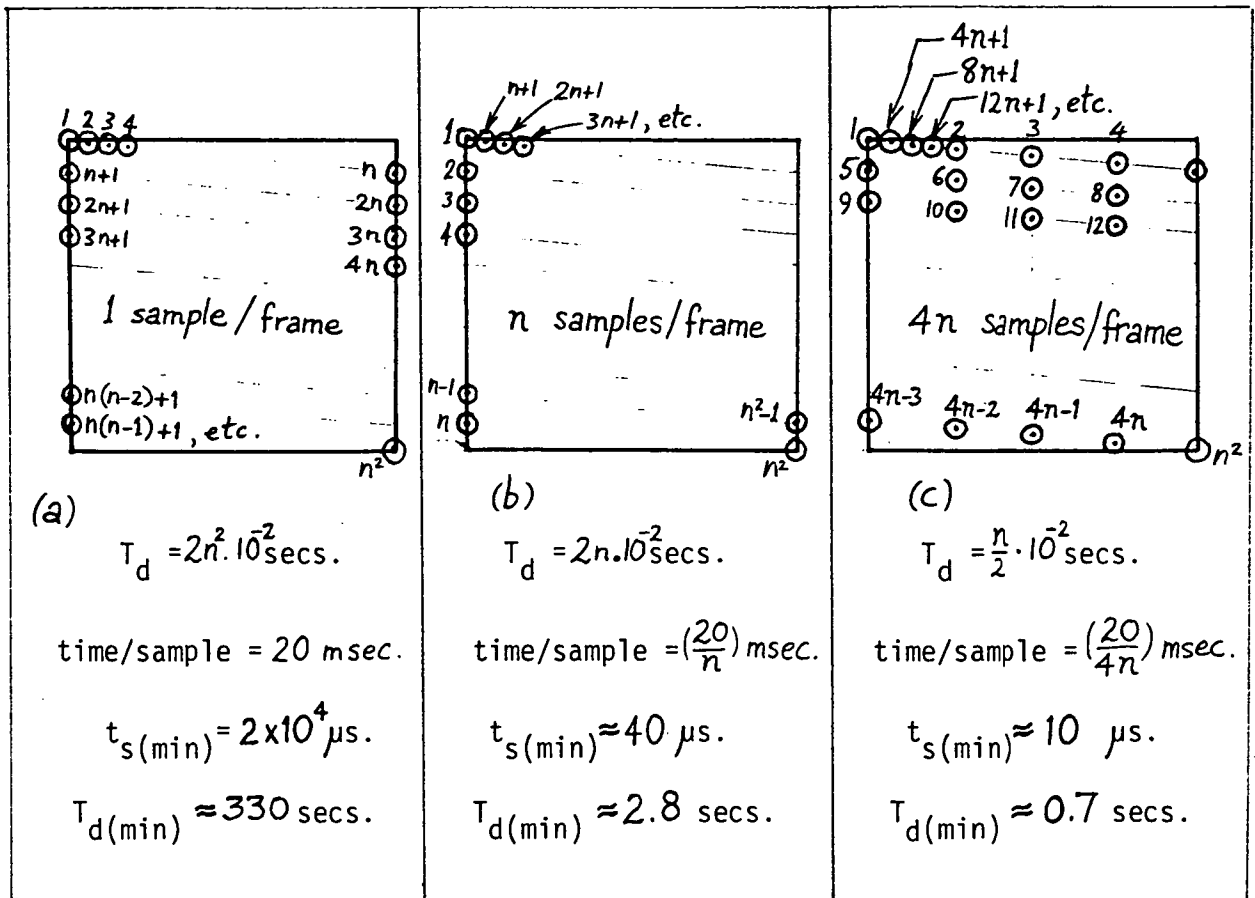 1 2 3 4
n+1
n
2n+1
2n
3n+1
3n
4n
1 sample/frame
n(n-2)+1
n(n-1)+1, etc.
n²
(a)
T_d = 2n².10⁻² secs.
time/sample = 20 msec.
t_s(min) = 2x10⁴ µs.
T_d(min) ≈ 330 secs.
n+1
2n+1
3n+1, etc.
1
2
3
4
n samples/frame
n-1
n
n²-1
n²
(b)
T_d = 2n.10⁻² secs.
time/sample = (20/n) msec.
t_s(min) ≈ 40 µs.
T_d(min) ≈ 2.8 secs.
4n+1
8n+1
12n+1, etc.
1 2 3 4
5 6 7 8
9 10 11 12
4n samples/frame
4n-3 4n-2 4n-1 4n
n²
(c)
T_d = n/2 · 10⁻² secs.
time/sample = (20/4n) msec.
t_s(min) ≈ 10 µs.
T_d(min) ≈ 0.7 secs.